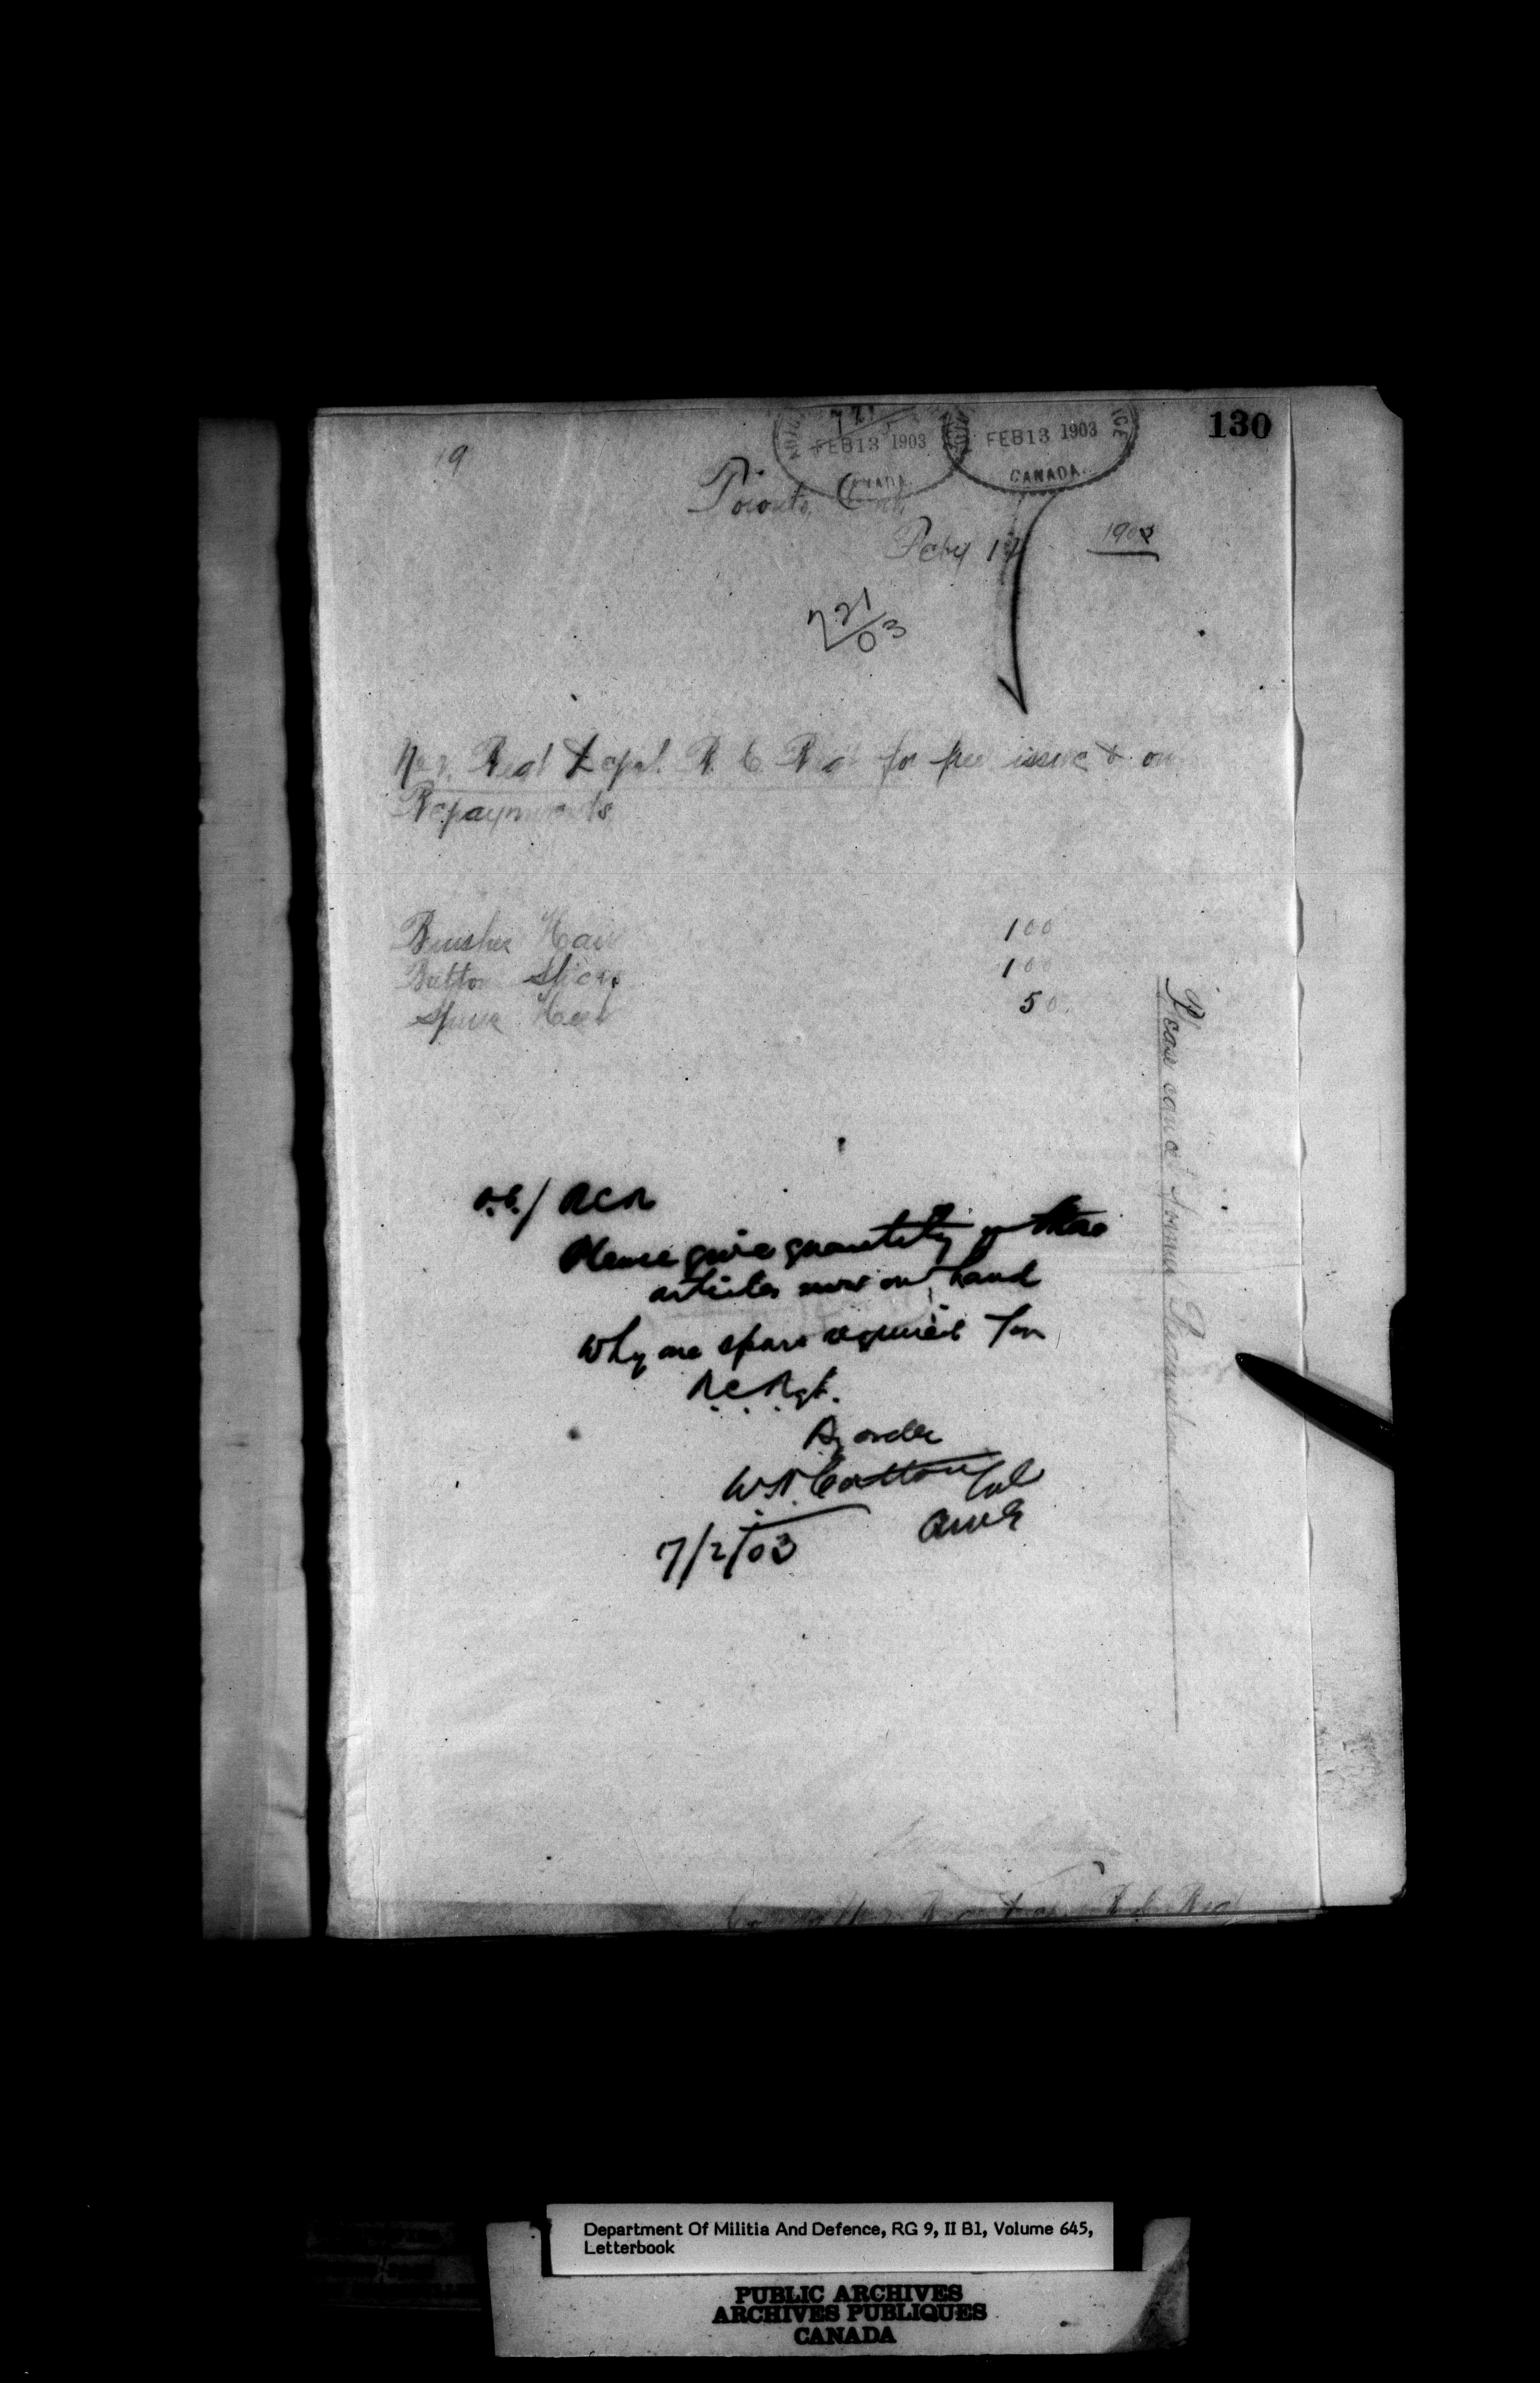 130
9
721
FEB 13 1903
CANADA
FEB 13 1903
CANADA
Toronto, Ont.
Feby 1903
721/03
No 2. Regl Depot. R. C. Regt for free issue & on
Repayments
Brushes Hair 100
Button Sticks 100
Spurs Heel 50
Please cancel former
O.C./ RCR
Please give quantity of these
articles now on hand
Why are spurs required for
R.C. Rgt.
By order
W.H. Cotton Col
7/2/03
Regt Depot R.C. Regt
Department Of Militia And Defence, RG 9, II B1, Volume 645,
Letterbook
PUBLIC ARCHIVES
ARCHIVES PUBLIQUES
CANADA